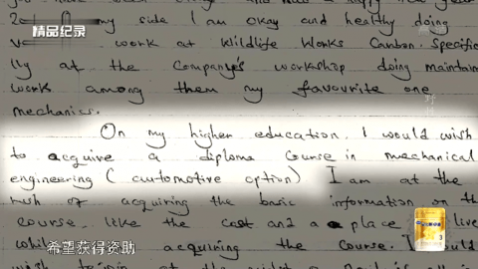 精品纪录
my side I am okay and healthy doing
work at Wildlife Works Carbon. Specific
lly at the Company's workshop doing maintain
work among them my favourite one
mechanics.
On my higher education. I would wish
to acquire a diploma course in mechanical
engineering (automotive option) I am at the
of acquiring the basic information on th
course. like the cost and a place live
while acquiring the course. I
希望获得资助